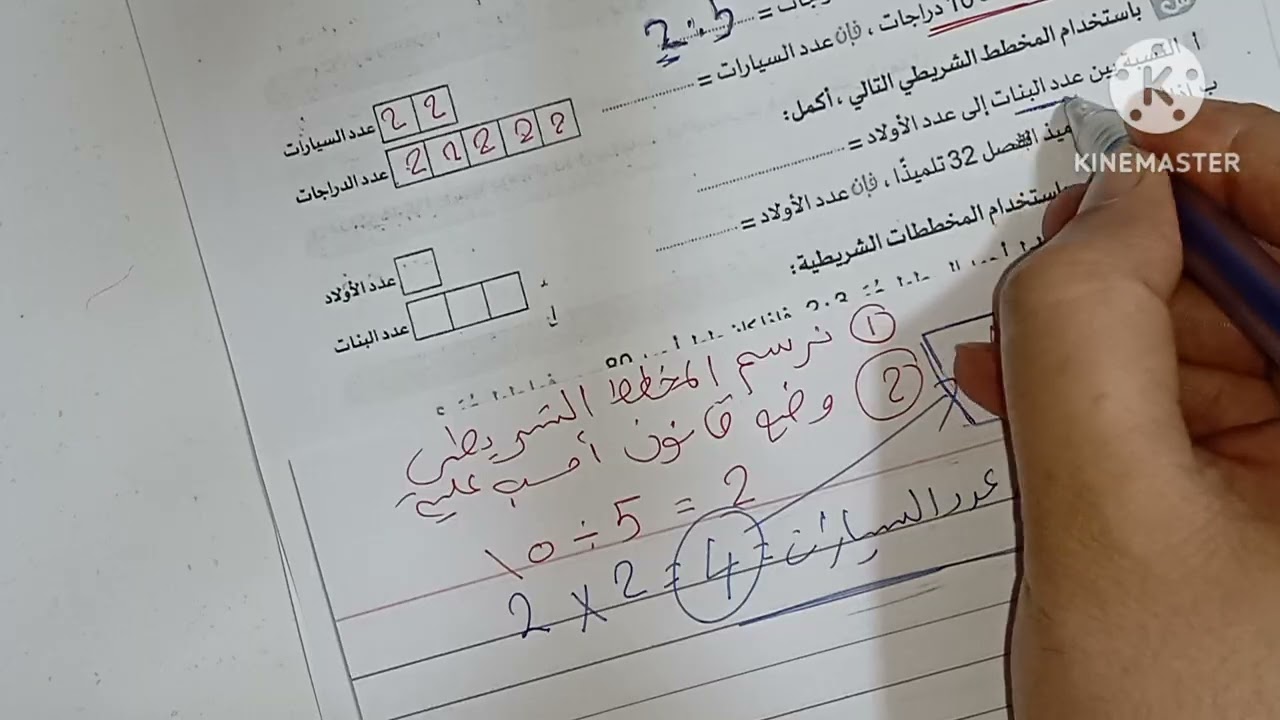 2:5
10 دراجات ، فإن عدد السيارات =
باستخدام المخطط الشريطي التالي ، أكمل:
أ النسبة بين عدد البنات إلى عدد الأولاد =
الفصل 32 تلميذًا ، فإن عدد الأولاد =
باستخدام المخططات الشريطية:
عدد السيارات
2 2
عدد الدراجات
2 2 2 2 2
عدد الأولاد
عدد البنات
KINEMASTER
① نرسم المخطط الشريطي
② وضع قانون أمشي عليه
10 ÷ 5 = 2
2 × 2 = 4 = عدد السيارات